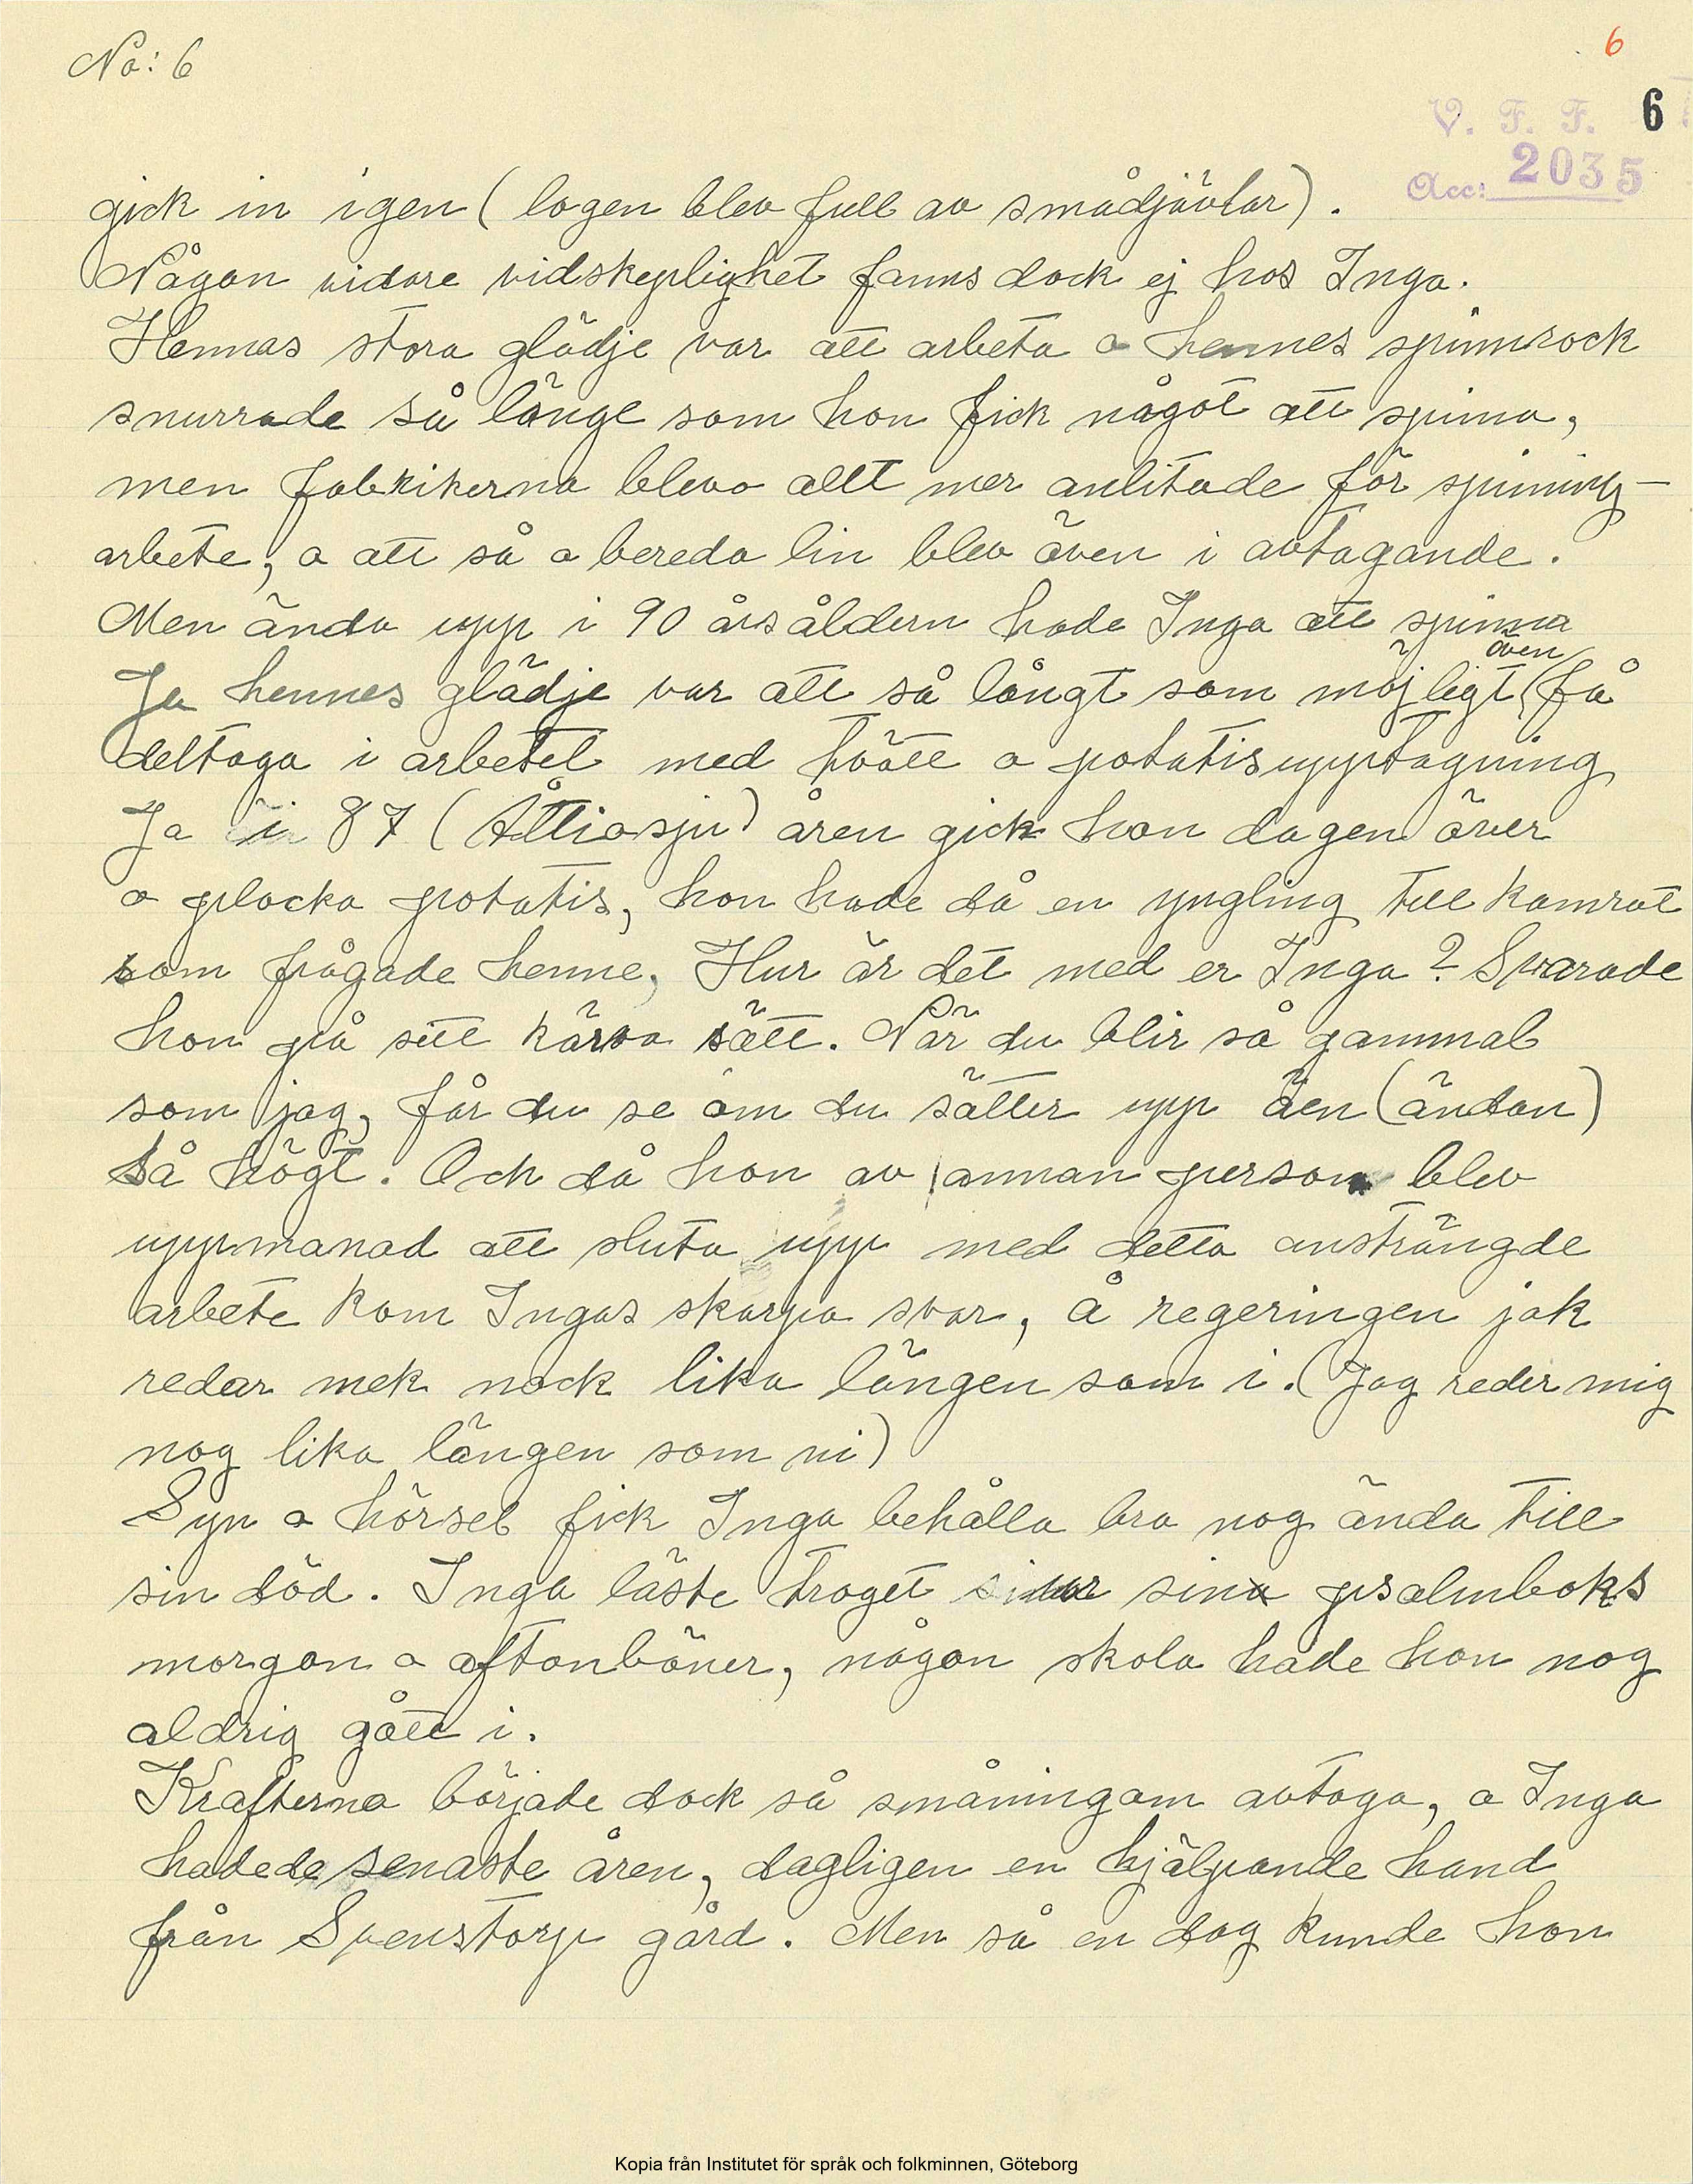 No: 6
6
6
V. F. F.
Acc: 2035
gick in igen (logen blev full av smådjävlar).
Någon vidare vidskeplighet fanns dock ej hos Inga.
Hennas stora glädje var att arbeta o hennes spinnrock
snurrade så länge som hon fick något att spinna,
men fabrikerna blevo allt mer anlitade för spinning-
arbete, o att så o bereda lin blev även i avtagande.
Men ända upp i 90 årsåldern hade Inga att spinna
även
Ja hennes glädje var att så långt som möjligt få
deltaga i arbetet med potatisupptagning
Ja i 87 (Åttiosju) åren gick hon dagen över
o plocka potatis, hon hade då en yngling till kamrat
som frågade henne, Hur är det med er Inga? Svarade
hon på sitt kärva sätt. När du blir så gammal
som jag, får du se om du sätter upp äen (ändan)
så högt. Och då hon av annan person blev
uppmanad att sluta upp med detta ansträngde
arbete kom Ingas skarpa svar, å regeringen jak
redar mek nock lika längen som i. (Jag reder mig
nog lika längen som ni)
Syn o hörsel fick Inga behålla bra nog ända till
sin död. Inga läste troget sina psalmboks
morgon o aftonböner, någon skola hade hon nog
aldrig gått i.
Krafterna började dock så småningom avtaga, o Inga
hade de senaste åren, dagligen en hjälpande hand
från Svenstorp gård. Men så en dag kunde hon
Kopia från Institutet för språk och folkminnen, Göteborg